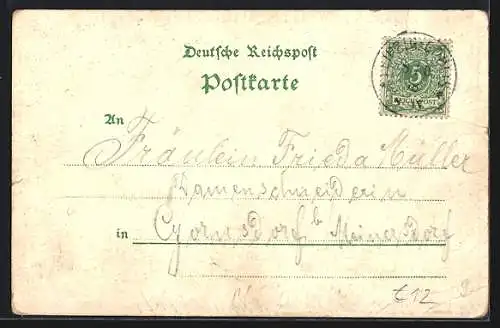 Deutsche Reichspost
Postkarte
5
REICHSPOST
An
Fräulein Frieda Müller
Damenschneiderin
in
b Meinersdorf
t12